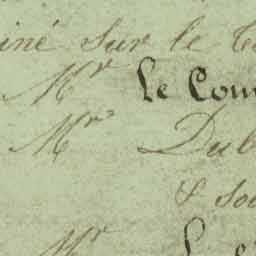 iné sur le
Mr Le Com
Mr Dub
& so
Mr